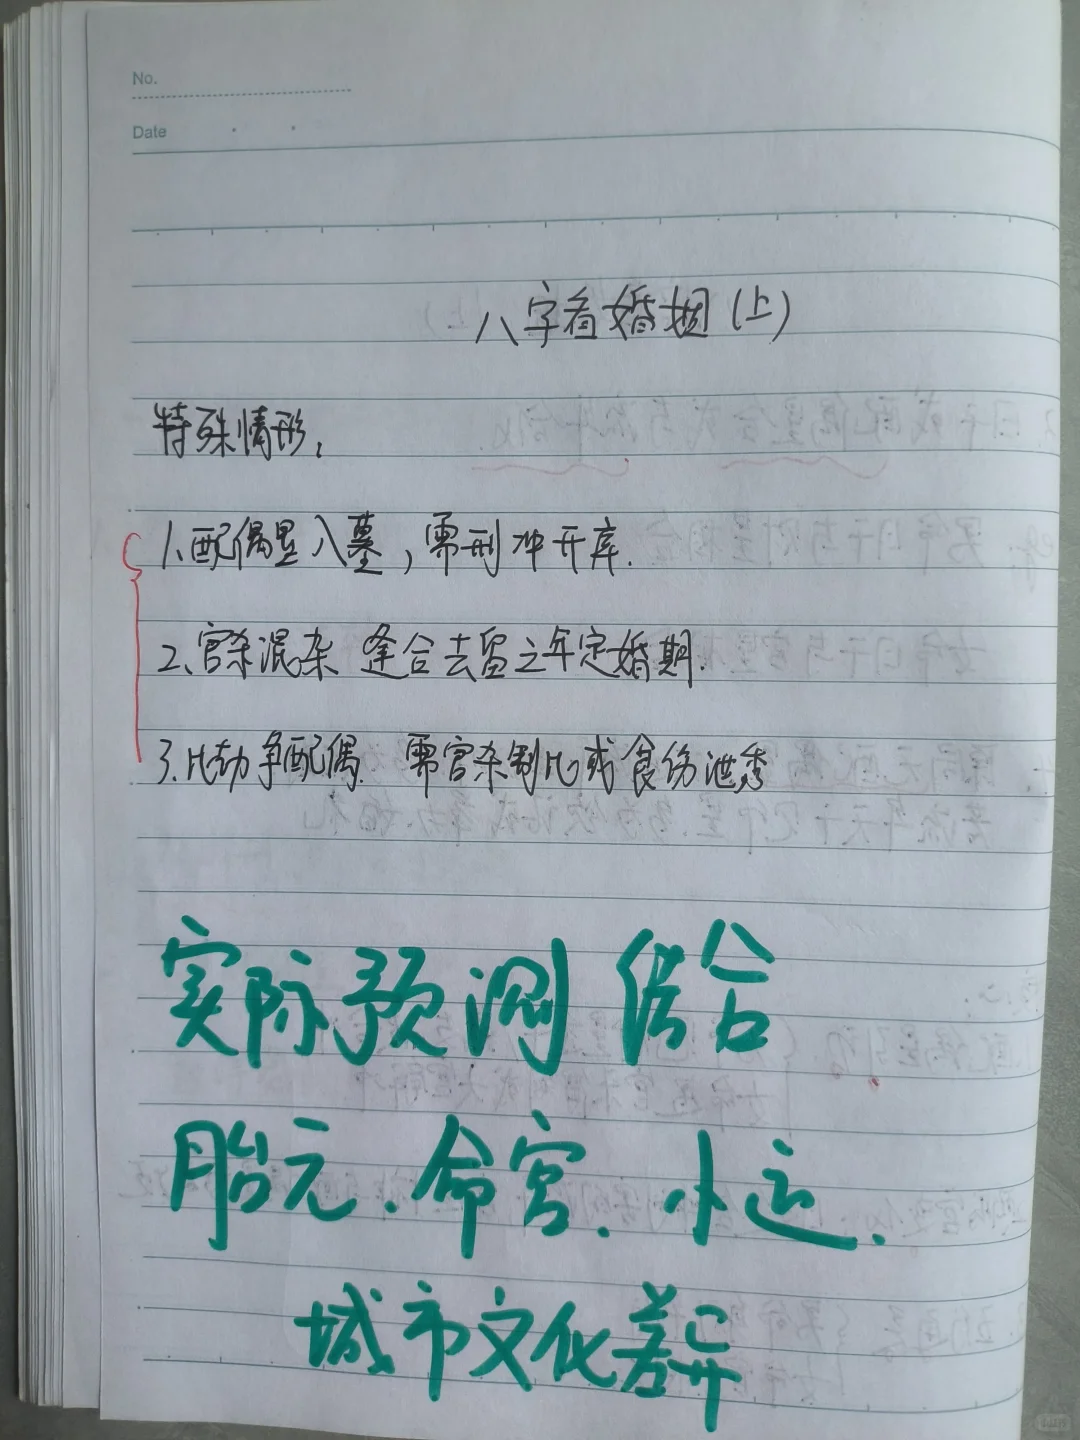 No.
Date
八字看婚姻(上)
特殊情形:
1.配偶星入墓,需刑冲开库.
2.官杀混杂 逢合去留之年定婚期.
3.比劫争配偶. 需官杀制比或食伤泄秀
实际预测结合
胎元.命宫.小运.
城市文化差异